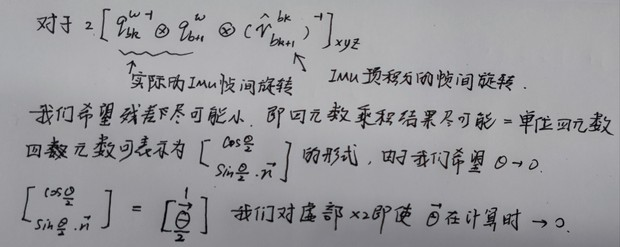 对于 2[q_{bk}^{w -1} ⊗ q_{bk+1}^{w} ⊗ (γ̂_{bk+1}^{bk})^{-1}]_{xyz}
实际的IMU帧间旋转 IMU预积分的帧间旋转.
我们希望残差尽可能小. 即四元数乘积结果尽可能 = 单位四元数
四元数可表示为 [cos θ/2 sin θ/2 · n⃗] 的形式, 由于我们希望 θ→0.
[cos θ/2 sin θ/2 · n⃗] = [1 θ⃗/2] 我们对虚部×2即使 θ⃗ 在计算时 → 0.